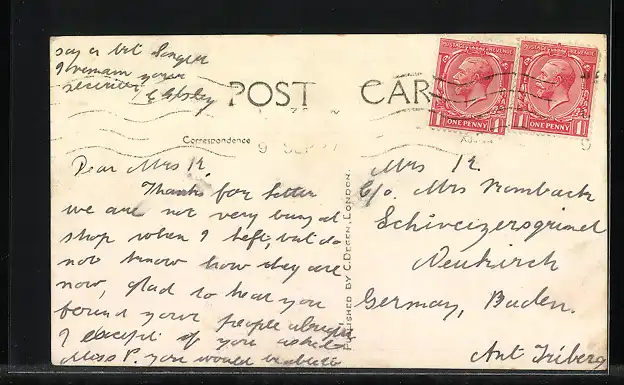 POSTAGE REVENUE
POSTAGE REVENUE
ONE PENNY
ONE PENNY
POST CARD
Correspondence
Dear Mrs K.
Thanks for letter
we are not very busy at
shop when I left, but do
not know how they are
now, glad to hear you
found your people alright
I except if you asked
Miss P. you would be able
say a bit longer
I remain yours
PUBLISHED BY C. DEGEN, LONDON.
Mrs K.
C/o. Mrs Rombach
Schweizersgrund
Neukirch
Germany, Baden.
Amt Triberg